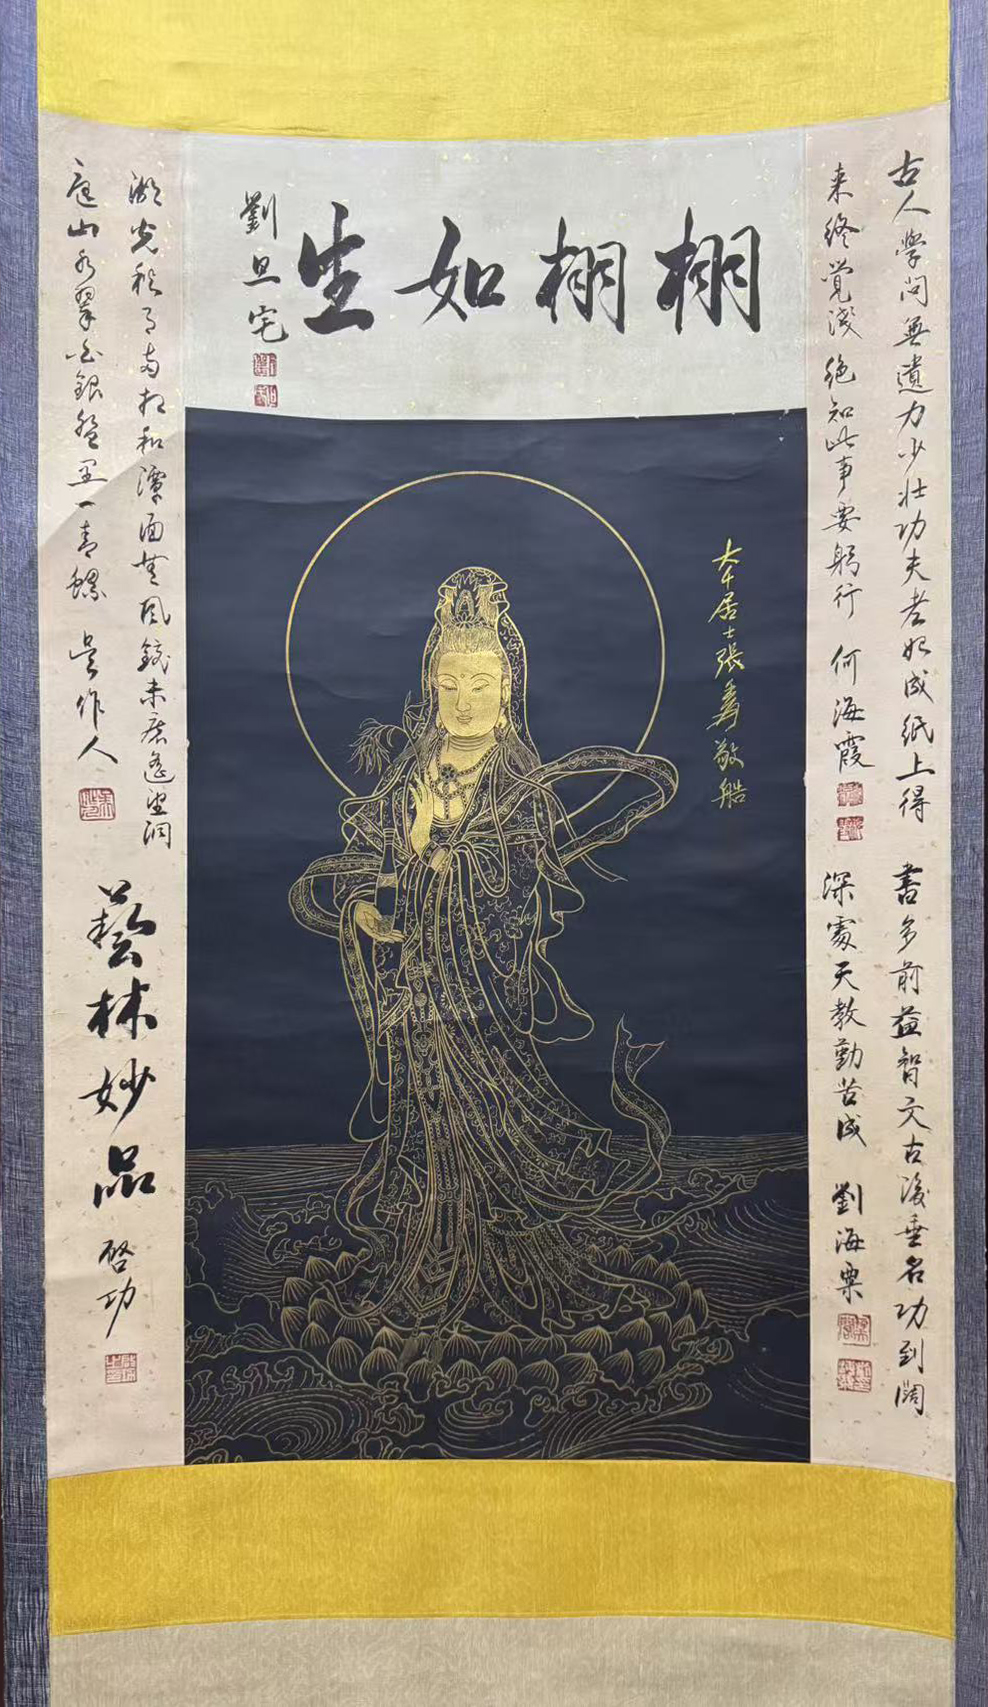 栩栩如生
劉旦宅
古人學问無遺力少壮功夫老始成紙上得
来终覺淺絶知此事要躬行 何海霞
書多前益智文古後垂名功到阔
深處天教勤苦成 劉海粟
大千居士張爰敬艁
湖光秋月两相和潭面無風鏡未磨遙望洞
庭山水翠白銀盤里一青螺 吴作人
藝林妙品 启功